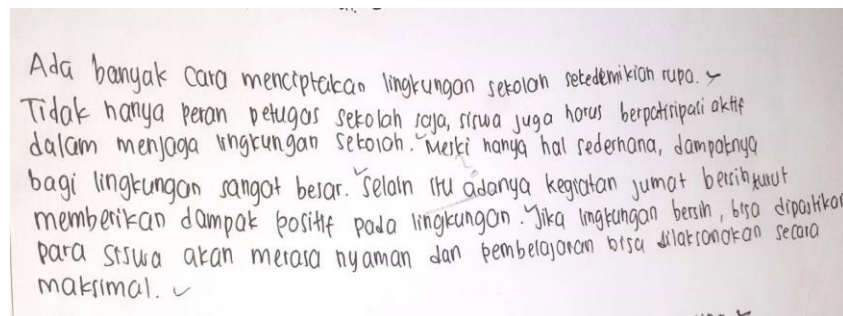 Ada banyak cara menciptakan lingkungan sekolah sekedemikian rupa.
Tidak hanya peran petugas sekolah saja, siswa juga harus berpatisipasi aktif
dalam menjaga lingkungan sekolah. Meski hanya hal sederhana, dampaknya
bagi lingkungan sangat besar. Selain itu adanya kegiatan jumat bersih turut
memberikan dampak positif pada lingkungan. Jika lingkungan bersih, bisa dipastikan
para siswa akan merasa nyaman dan pembelajaran bisa dilaksanakan secara
maksimal.